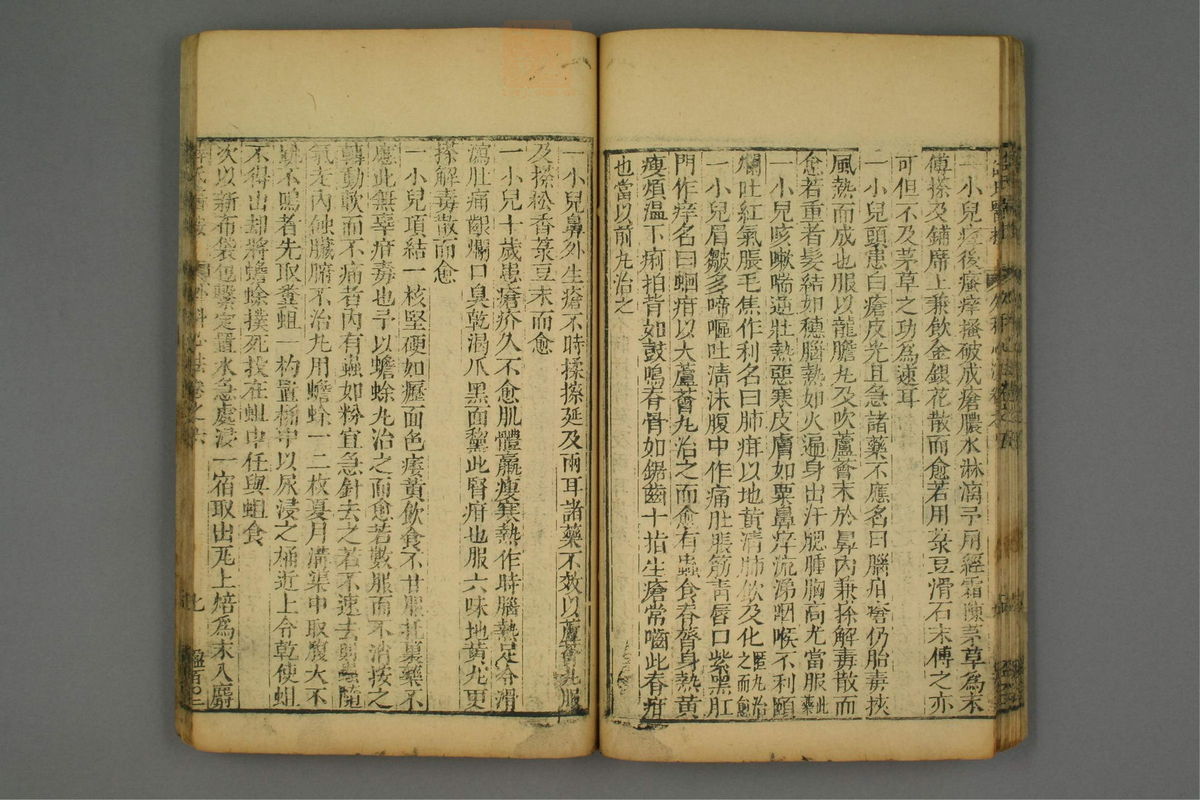 一小兒痘後瘙癢搔破成瘡膿水淋漓予用經霜陳茅草為末
傅搽及鋪席上兼飲金銀花散而愈若用菉豆滑石末傅之亦
可但不及茅草之功為速耳
一小兒頭患白瘡皮光且急諸藥不應名曰腦疳瘡仍胎毒挾
風熱而成也服以龍膽丸及吹蘆薈末於鼻內兼搽解毒散而
愈若重者髮結如穗腦熱如火遍身出汗腮腫胸高尤當服此藥
一小兒咳嗽喘逆壯熱惡寒皮膚如粟鼻痒流涕咽喉不利頤
爛吐紅氣脹毛焦作利名曰肺疳以地黃清肺飲及化䘌丸治之而愈
一小兒眉皺多啼嘔吐清沫腹中作痛肚脹筋青唇口紫黑肛
門作痒名曰蛔疳以大蘆薈丸治之而愈有蟲食脊膂身熱黃
瘦煩溫下痢拍背如鼓鳴脊骨如鋸齒十指生瘡常嚙此脊疳
也當以前丸治之
一小兒鼻外生瘡不時揉擦延及兩耳諸藥不效以蘆薈丸服
及搽松香菉豆末而愈
一小兒十歲患瘡疥久不愈肌體羸瘦寒熱作時腦熱足冷滑
瀉肚痛齦爛口臭乾渴爪黑面黧此腎疳也服六味地黃丸更
搽解毒散而愈
一小兒項結一核堅硬如癧面色痿黃飲食不甘服托裏藥不
應此無辜疳毒也予以蟾蜍丸治之而愈若數服而不消按之
轉動軟而不痛者內有蟲如粉宜急針去之若不速去則蟲隨
氣走內蝕臟腑不治丸用蟾蜍一二枚夏月溝渠中取腹大不
跳不鳴者先取糞蛆一杓置桶中以尿浸之桶近上令乾使蛆
不得出却將蟾蜍撲死投在蛆中任與蛆食
次以新布袋包繫定置水急處浸一宿取出瓦上焙為末入麝